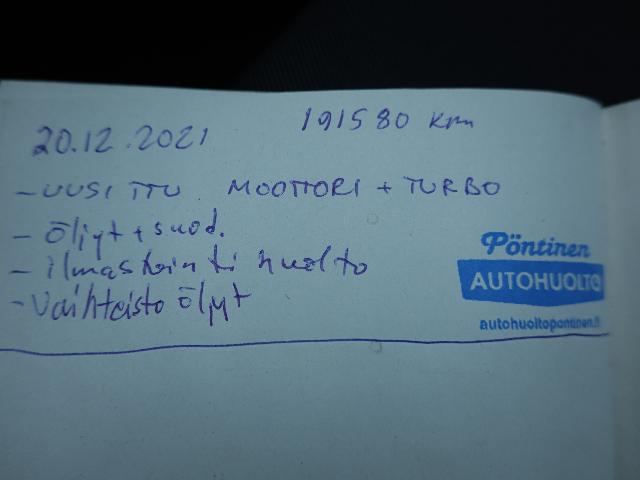 20.12.2021 191580 km
- UUSITTU MOOTTORI + TURBO
- Öljyt + suod.
- ilmastointi huolto
- Vaihteisto öljyt
Pöntinen
AUTOHUOLTO
autohuoltopontinen.fi